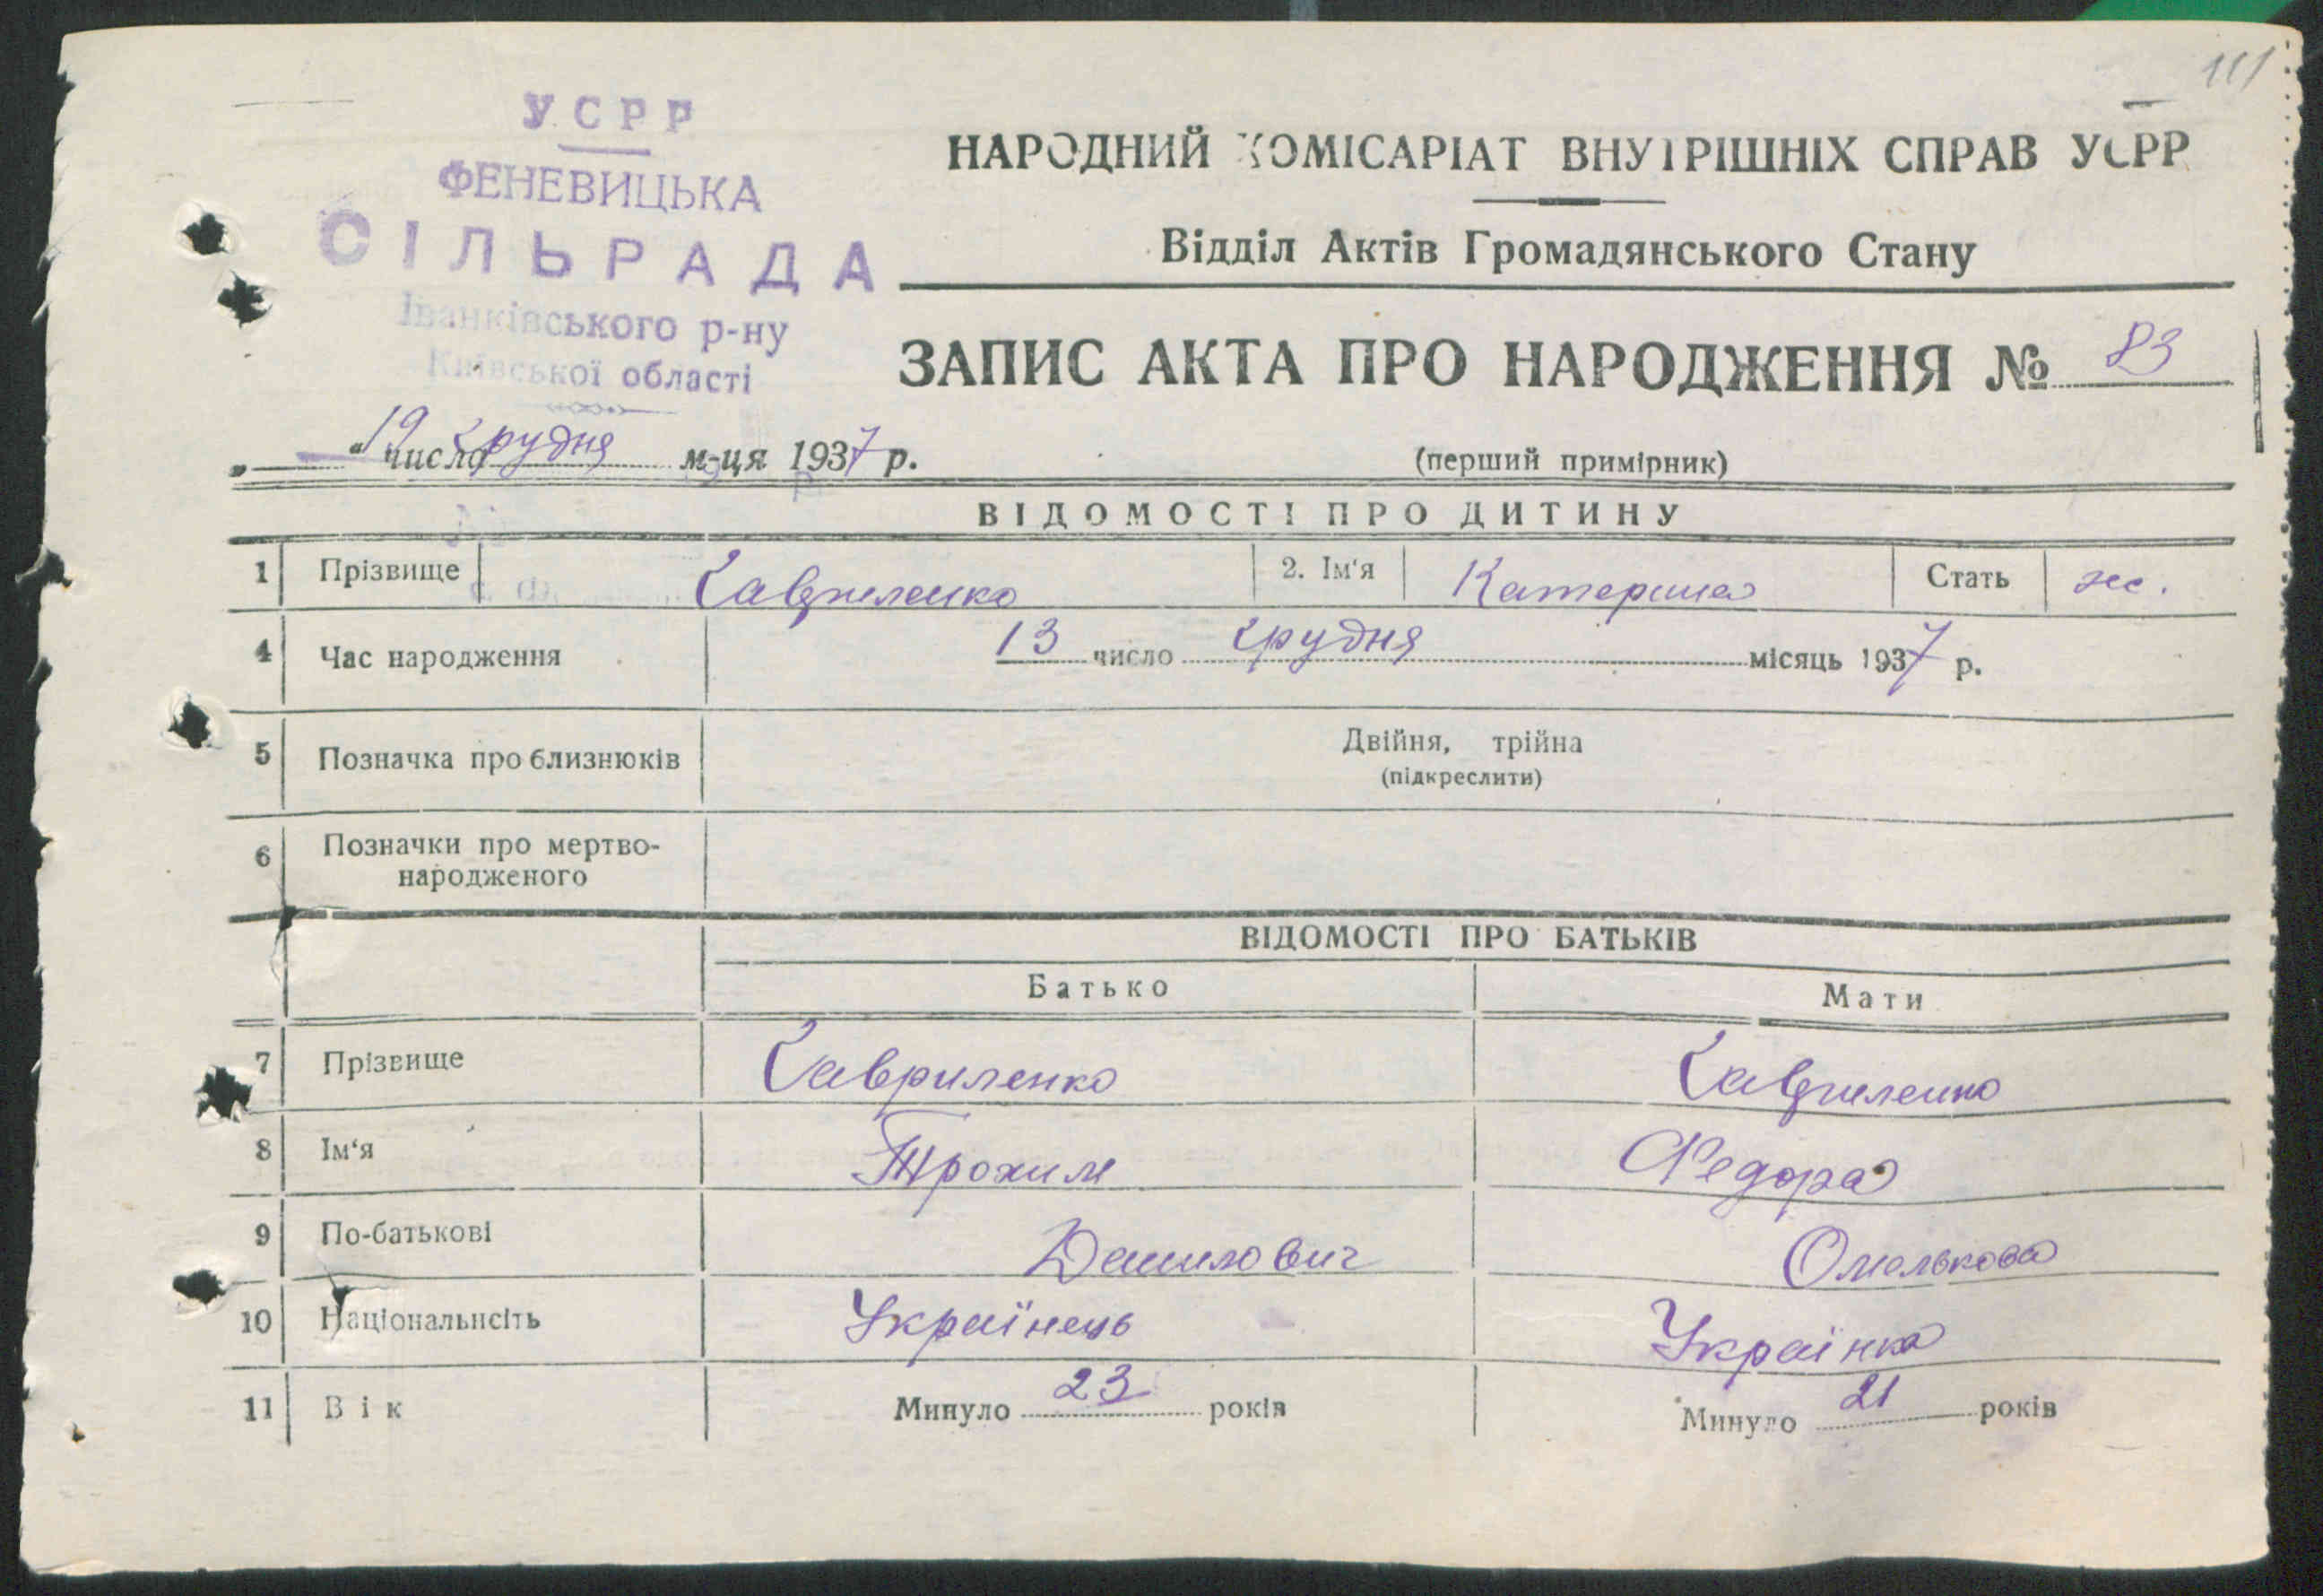 111
УСРР
ФЕНЕВИЦЬКА
СІЛЬРАДА
Іванківського р-ну
Київської області
НАРОДНИЙ КОМІСАРІАТ ВНУТРІШНІХ СПРАВ УСРР
Відділ Актів Громадянського Стану
ЗАПИС АКТА ПРО НАРОДЖЕННЯ № 83
„ 19 “ число грудня м-ця 1937 р.
(перший примірник)
ВІДОМОСТІ ПРО ДИТИНУ
1 Прізвище Гавриленко 2. Ім'я Катерина Стать ж.
4 Час народження 13 число грудня місяць 1937 р.
5 Позначка про близнюків Двійня, трійна
(підкреслити)
6 Позначки про мертво-
народженого
ВІДОМОСТІ ПРО БАТЬКІВ
Батько Мати
7 Прізвище Гавриленко Гавриленко
8 Ім'я Трохим Федора
9 По-батькові Данилович Омелькова
10 Національність Українець Українка
11 Вік Минуло 23 років Минуло 21 років